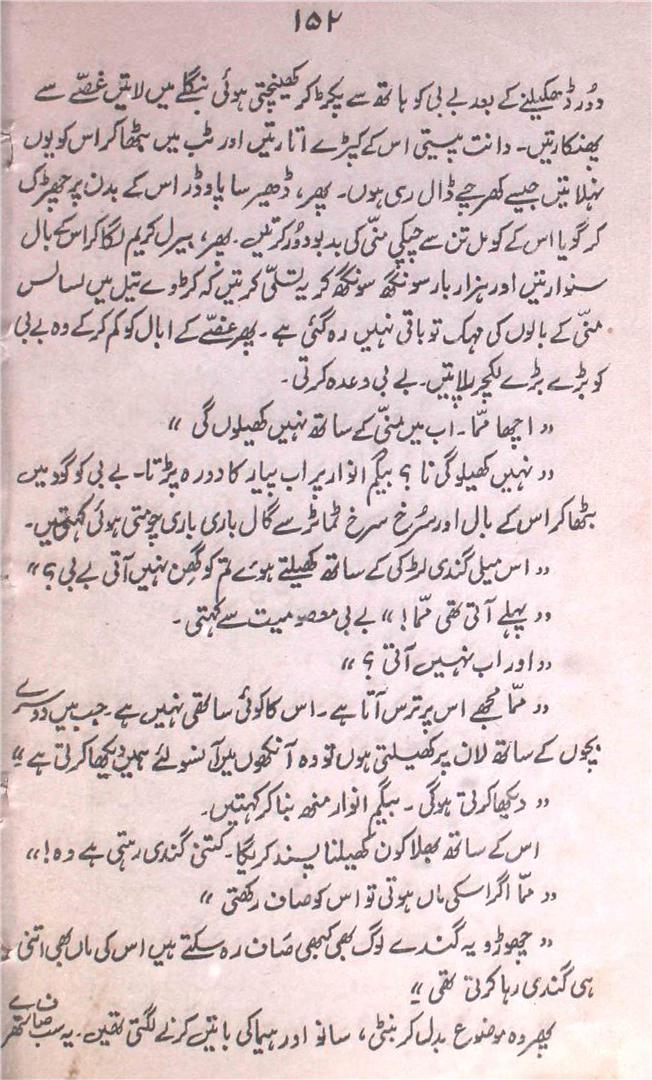 ۱۵۲
دور ڈھکیلنے کے بعد بے بی کو ہاتھ سے پکڑ کر کھینچتی ہوئی بنگلے میں لاتیں غصّے سے
پھنکارتیں۔ دانت پیستی اس کے کپڑے اتارتیں اور ٹب میں بٹھا کر اس کو یوں
نہلاتیں جیسے کھرچے ڈال رہی ہوں۔ پھر، ڈھیر سا پاوڈر اس کے بدن پر چھڑک
کر گویا اس کے کومل تن سے چپکی منّی کی بدبو دُور کرتیں۔ پھر، بیرل کریم لگا کر اس کے بال
سنوارتیں اور ہزار بار سونگھ سونگھ کر یہ تسلّی کرتیں کہ کڑوے تیل میں لسالس
منّی کے بالوں کی مہک تو باقی نہیں رہ گئی ہے۔ پھر غصّے کے ابال کو کم کر کے وہ بے بی
کو بڑے بڑے لکچر پلاتیں۔ بے بی وعدہ کرتی۔
”اچھا ممّا۔ اب میں منّی کے ساتھ نہیں کھیلوں گی“
”نہیں کھیلو گی نا؟ بیگم انوار پر اب پیار کا دورہ پڑتا۔ بے بی کو گود میں
بٹھا کر اس کے بال اور سُرخ سرخ ٹماٹر سے گال باری باری چومتی ہوئی کہتیں۔
”اس میلی گندی لڑکی کے ساتھ کھیلتے ہوئے تم کو گھِن نہیں آتی بے بی؟“
”پہلے آتی تھی ممّا!“ بے بی معصومیت سے کہتی۔
”اور اب نہیں آتی؟“
”ممّا مجھے اس پر ترس آتا ہے۔ اس کا کوئی ساتھی نہیں ہے۔ جب میں دوسرے
بچوں کے ساتھ لان پر کھیلتی ہوں تو وہ آنکھوں میں آنسو لئے ہمیں دیکھا کرتی ہے“
”دیکھا کرتی ہوگی۔ بیگم انوار منھ بنا کر کہتیں۔
اس کے ساتھ بھلا کون کھیلنا پسند کریگا۔ کتنی گندی رہتی ہے وہ!“
”ممّا اگر اسکی ماں ہوتی تو اس کو صاف رکھتی“
”چھوڑو یہ گندے لوگ بھی کبھی صاف رہ سکتے ہیں اس کی ماں بھی اتنی
ہی گندی رہا کرتی تھی“
پھر وہ موضوع بدل کر بنٹی، سانو اور ہیما کی باتیں کرنے لگتی تھیں۔ یہ سب صاف